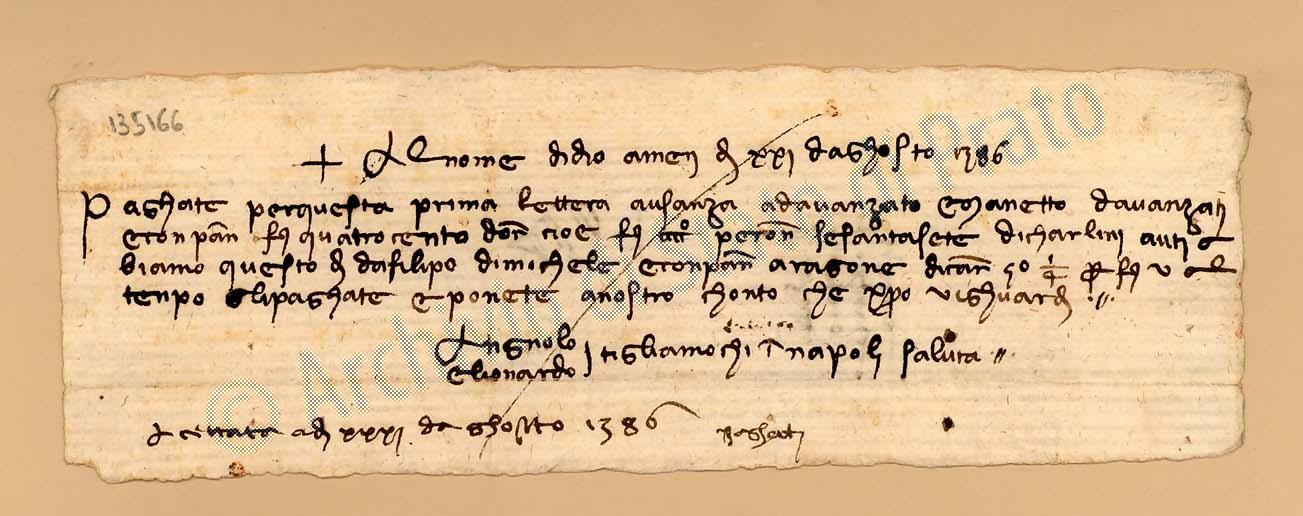 135166
+ Al nome didio amen dì XXI daghosto 1386
Paghate perquesta prima lettera ausanza adavanzato emanetto davanzati
econpan quatrocento cioe cccc sesantasete dicharlini auti
biamo questo dì dafilipo dimichele econpan aragone 50
tenpo glipaghate eponete anostro chonto che xpo vighuardi
Angnolo
elionardo tigliamochi i napoli saluta
Accettata adì XXXI daghosto 1386 Paghati
© Archivio di Stato di Prato